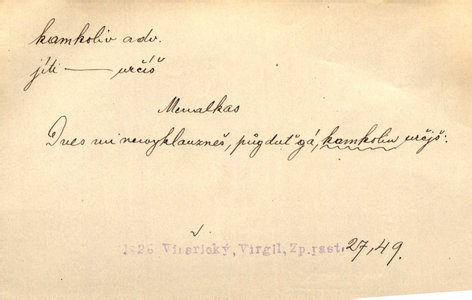 kamkoliv adv.
jíti — určíš
Menalkas
Dnes mi nevyklauzneš, půgduť gá, kamkoliv určjš.
1828 Vinařický, Virgil, Zp.past. 27,49.